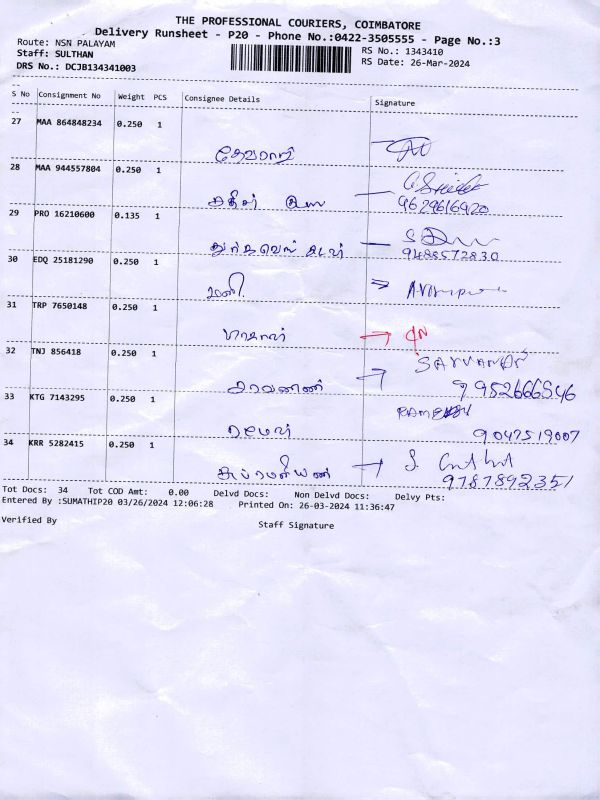 THE PROFESSIONAL COURIERS, COIMBATORE
Delivery Runsheet - P20 - Phone No.:0422-3505555 - Page No.:3
Route: NSN PALAYAM
Staff: SULTHAN
DRS No.: DCJB134341003
RS No.: 1343410
RS Date: 26-Mar-2024
S No Consignment No Weight PCS Consignee Details Signature
27 MAA 864848234 0.250 1
28 MAA 944557804 0.250 1
9629616920
29 PRO 16210600 0.135 1
9488572830
30 EDQ 25181290 0.250 1
மணி
31 TRP 7650148 0.250 1
32 TNJ 856418 0.250 1
சரவணன்
33 KTG 7143295 0.250 1
ரமேஷ் 9047519007
34 KRR 5282415 0.250 1
சுப்ரமணியன்
9787892351
Tot Docs: 34 Tot COD Amt: 0.00 Delvd Docs: Non Delvd Docs: Delvy Pts:
Entered By :SUMATHIP20 03/26/2024 12:06:28 Printed On: 26-03-2024 11:36:47
Verified By Staff Signature